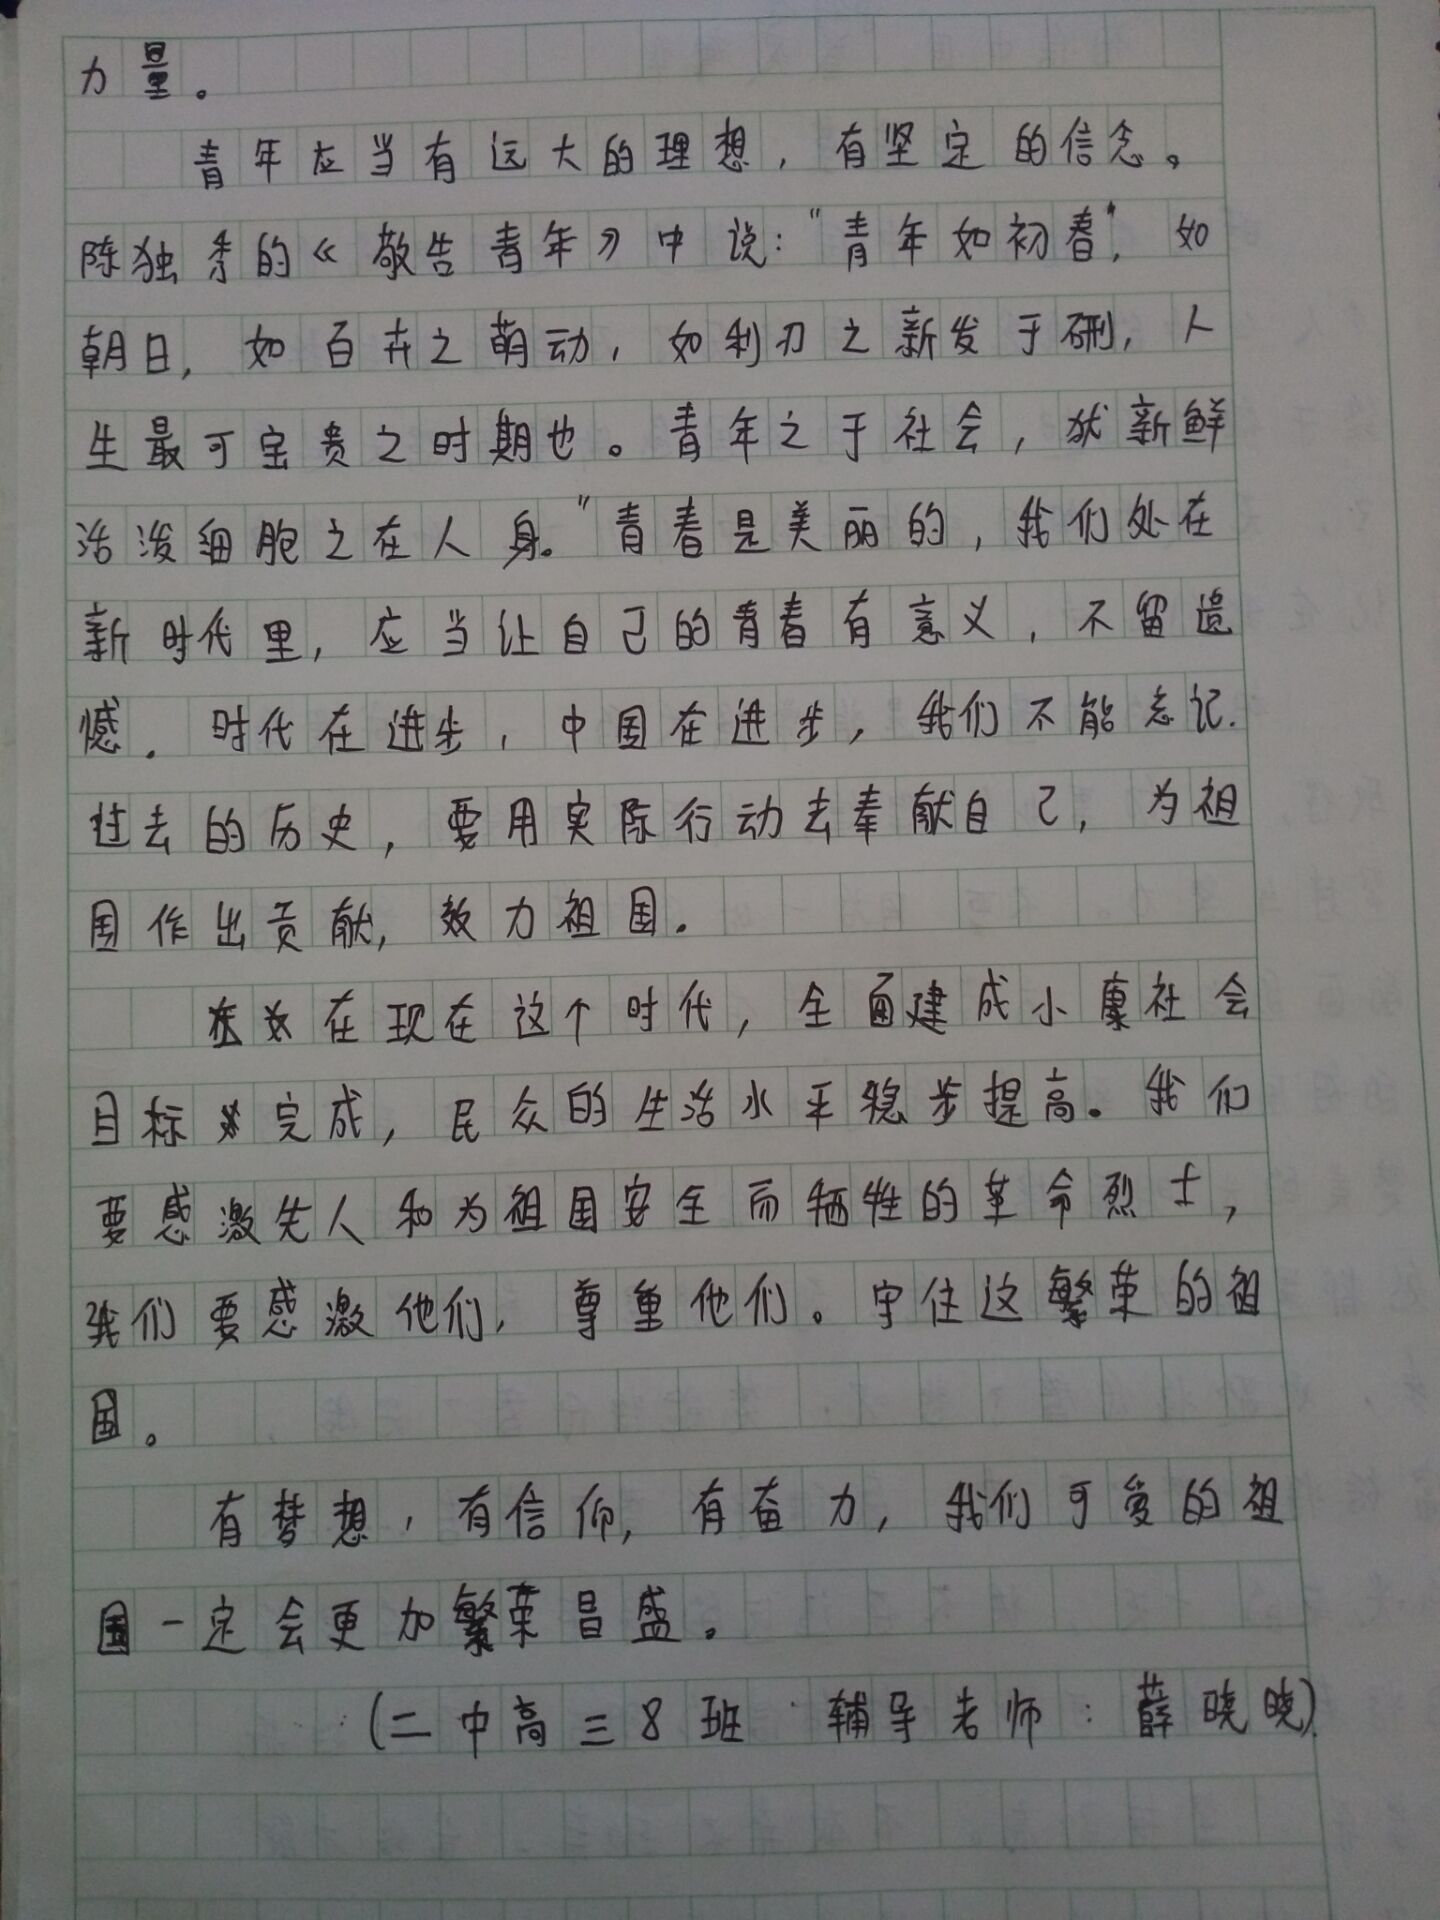 力量。
青年应当有远大的理想，有坚定的信念。
陈独秀的《敬告青年》中说："青年如初春"，如
朝日，如百卉之萌动，如利刃之新发于硎，人
生最可宝贵之时期也。青年之于社会，犹新鲜
活泼细胞之在人身。"青春是美丽的，我们处在
新时代里，应当让自己的青春有意义，不留遗
憾．时代在进步，中国在进步，我们不能忘记
过去的历史，要用实际行动去奉献自己，为祖
国作出贡献，效力祖国．
在现在这个时代，全面建成小康社会
目标完成，民众的生活水平稳步提高。我们
要感激先人和为祖国安全而牺牲的革命烈士，
我们要感激他们，尊重他们。守住这繁荣的祖
国。
有梦想，有信仰，有奋力，我们可爱的祖
国一定会更加繁荣昌盛。
（二中高三8班 辅导老师：薛晓晓）